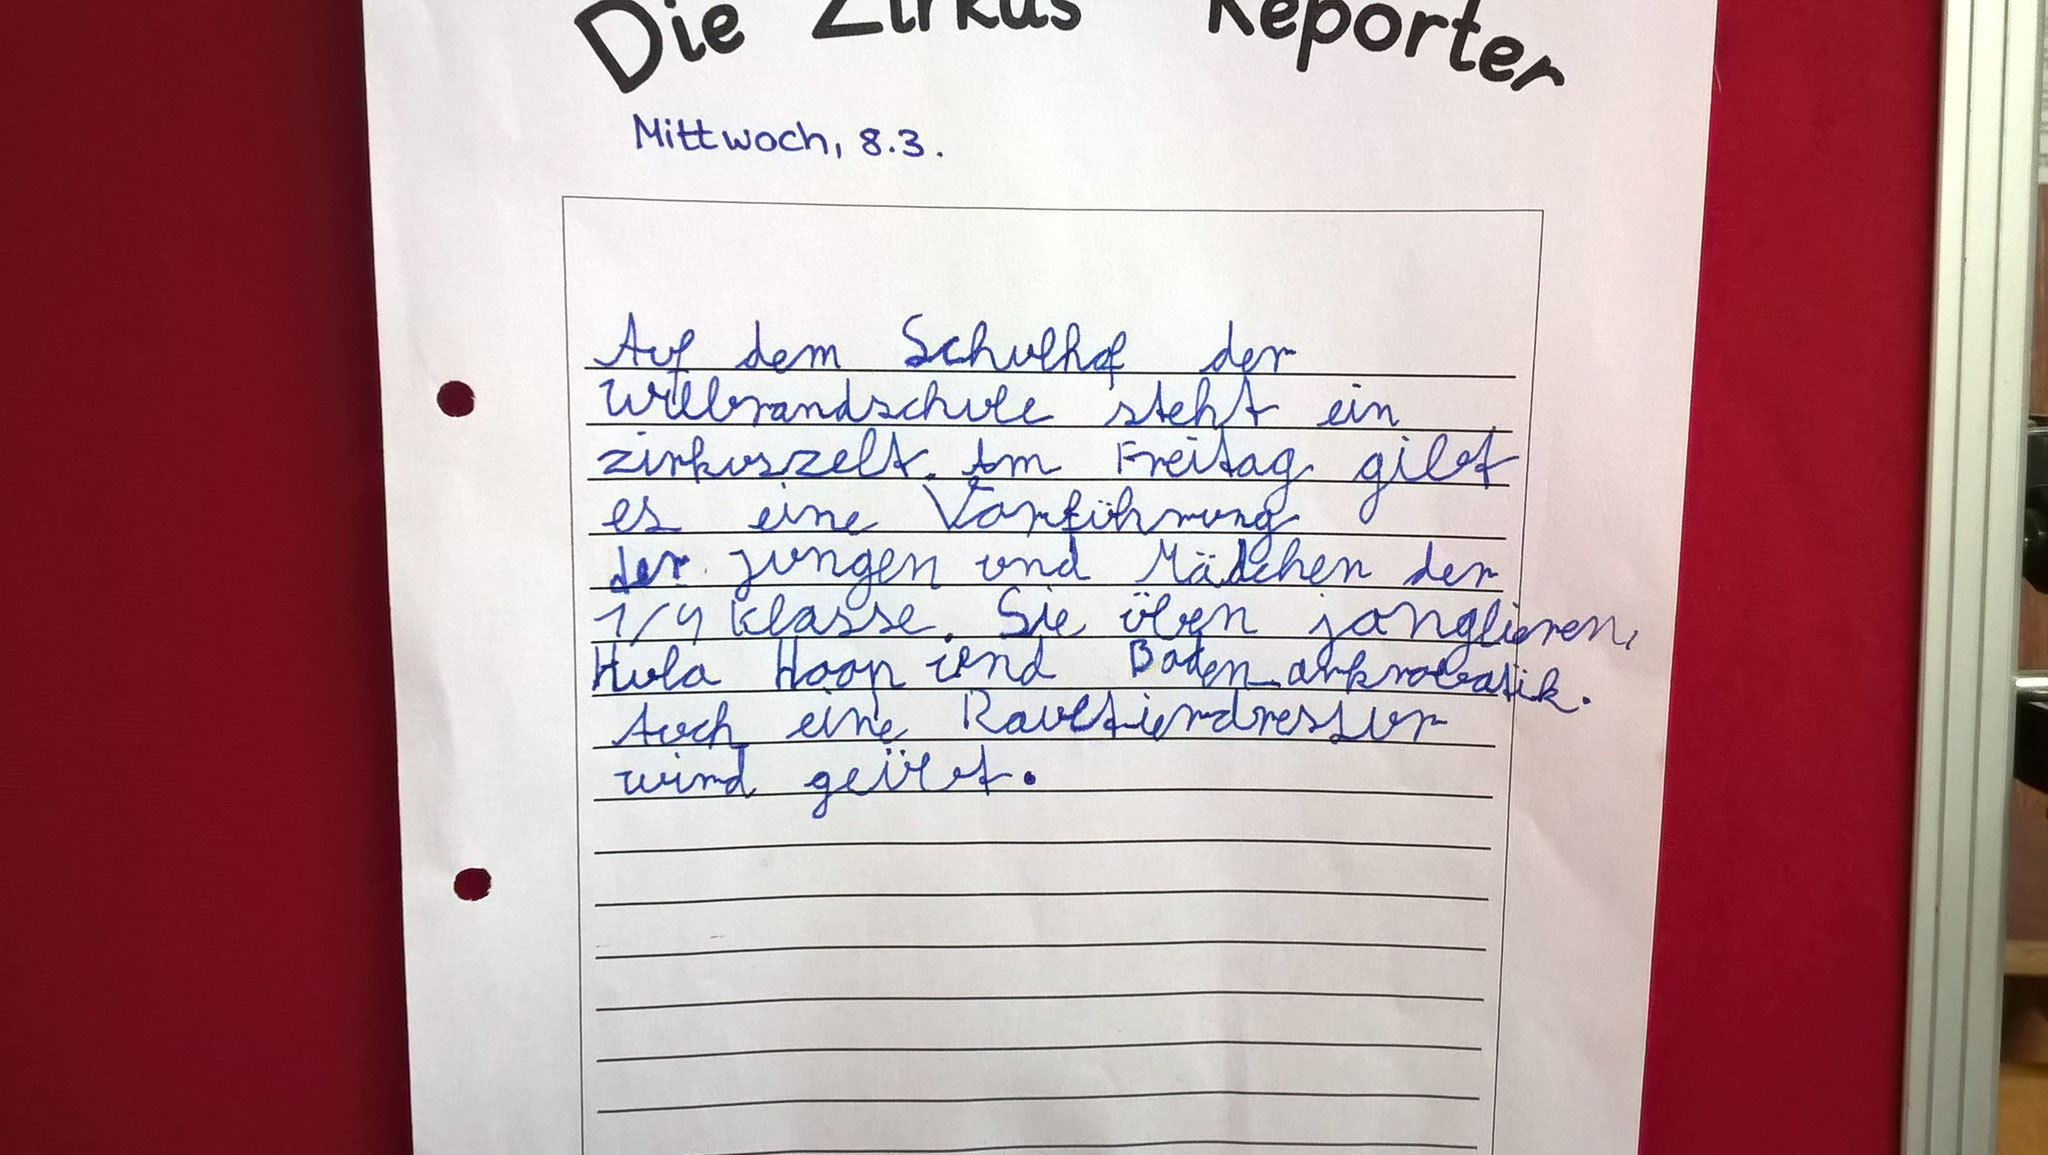 Die Zirkus Reporter
Mittwoch, 8.3.
Auf dem Schulhof der
Wilbrandschule steht ein
zirkuszelt. Am Freitag gibt
es eine Vorführung
der jungen und Mädchen der
1/4 klasse. Sie üben jonglieren,
Hula Hoop und Boden arkrobatik.
Auch eine Raubtierdressur
wird geübt.